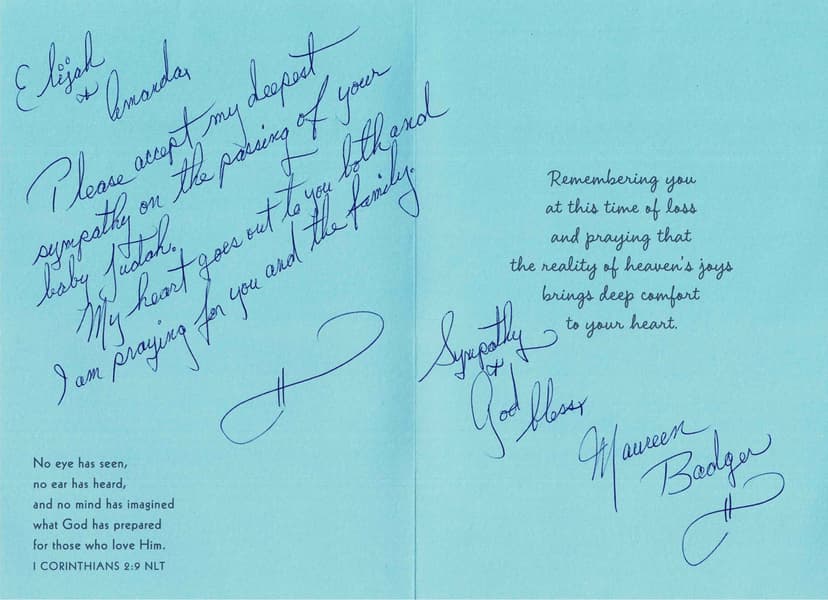 Elijah
+ Amanda,
Please accept my deepest
sympathy on the passing of your
baby Judah.
My heart goes out to you both and
I am praying for you and the family.
No eye has seen,
no ear has heard,
and no mind has imagined
what God has prepared
for those who love Him.
I CORINTHIANS 2:9 NLT
Remembering you
at this time of loss
and praying that
the reality of heaven's joys
brings deep comfort
to your heart.
Sympathy
+
God bless,
Maureen
Badger